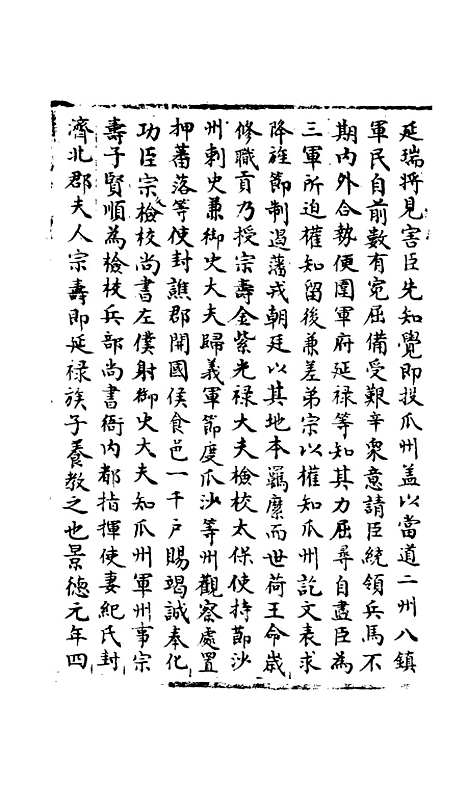 延瑞將見害臣先知覺即投瓜州盖以當道二州八鎮
軍民自前數有寃屈備受艱辛衆意請臣統領兵馬不
期内外合勢便圍軍府延禄等知其力屈尋自盡臣為
三軍所迫權知留後兼差弟宗以權知瓜州訖文表求
降旌節制遏藩戎朝廷以其地本羈縻而世荷王命歲
修職貢乃授宗壽金紫光禄大夫檢校太保使持節沙
州刺史兼御史大夫歸義軍節度瓜沙等州觀察處置
押蕃落等使封譙郡開國侯食邑一千户賜竭誠奉化
功臣宗檢校尚書左僕射御史大夫知瓜州軍州事宗
壽子賢順為檢校兵部尚書衙内都指揮使妻紀氏封
濟北郡夫人宗壽即延禄族子養教之也景德元年四